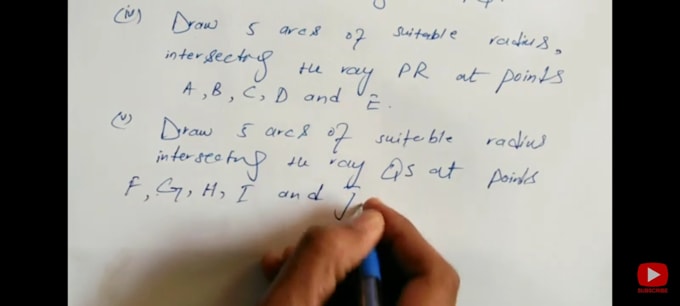 (iv) Draw 5 arcs of suitable radius,
intersecting the ray PR at points
A, B, C, D and E.
(v) Draw 5 arcs of suitable radius
intersecting the ray QS at points
F, G, H, I and J
SUBSCRIBE